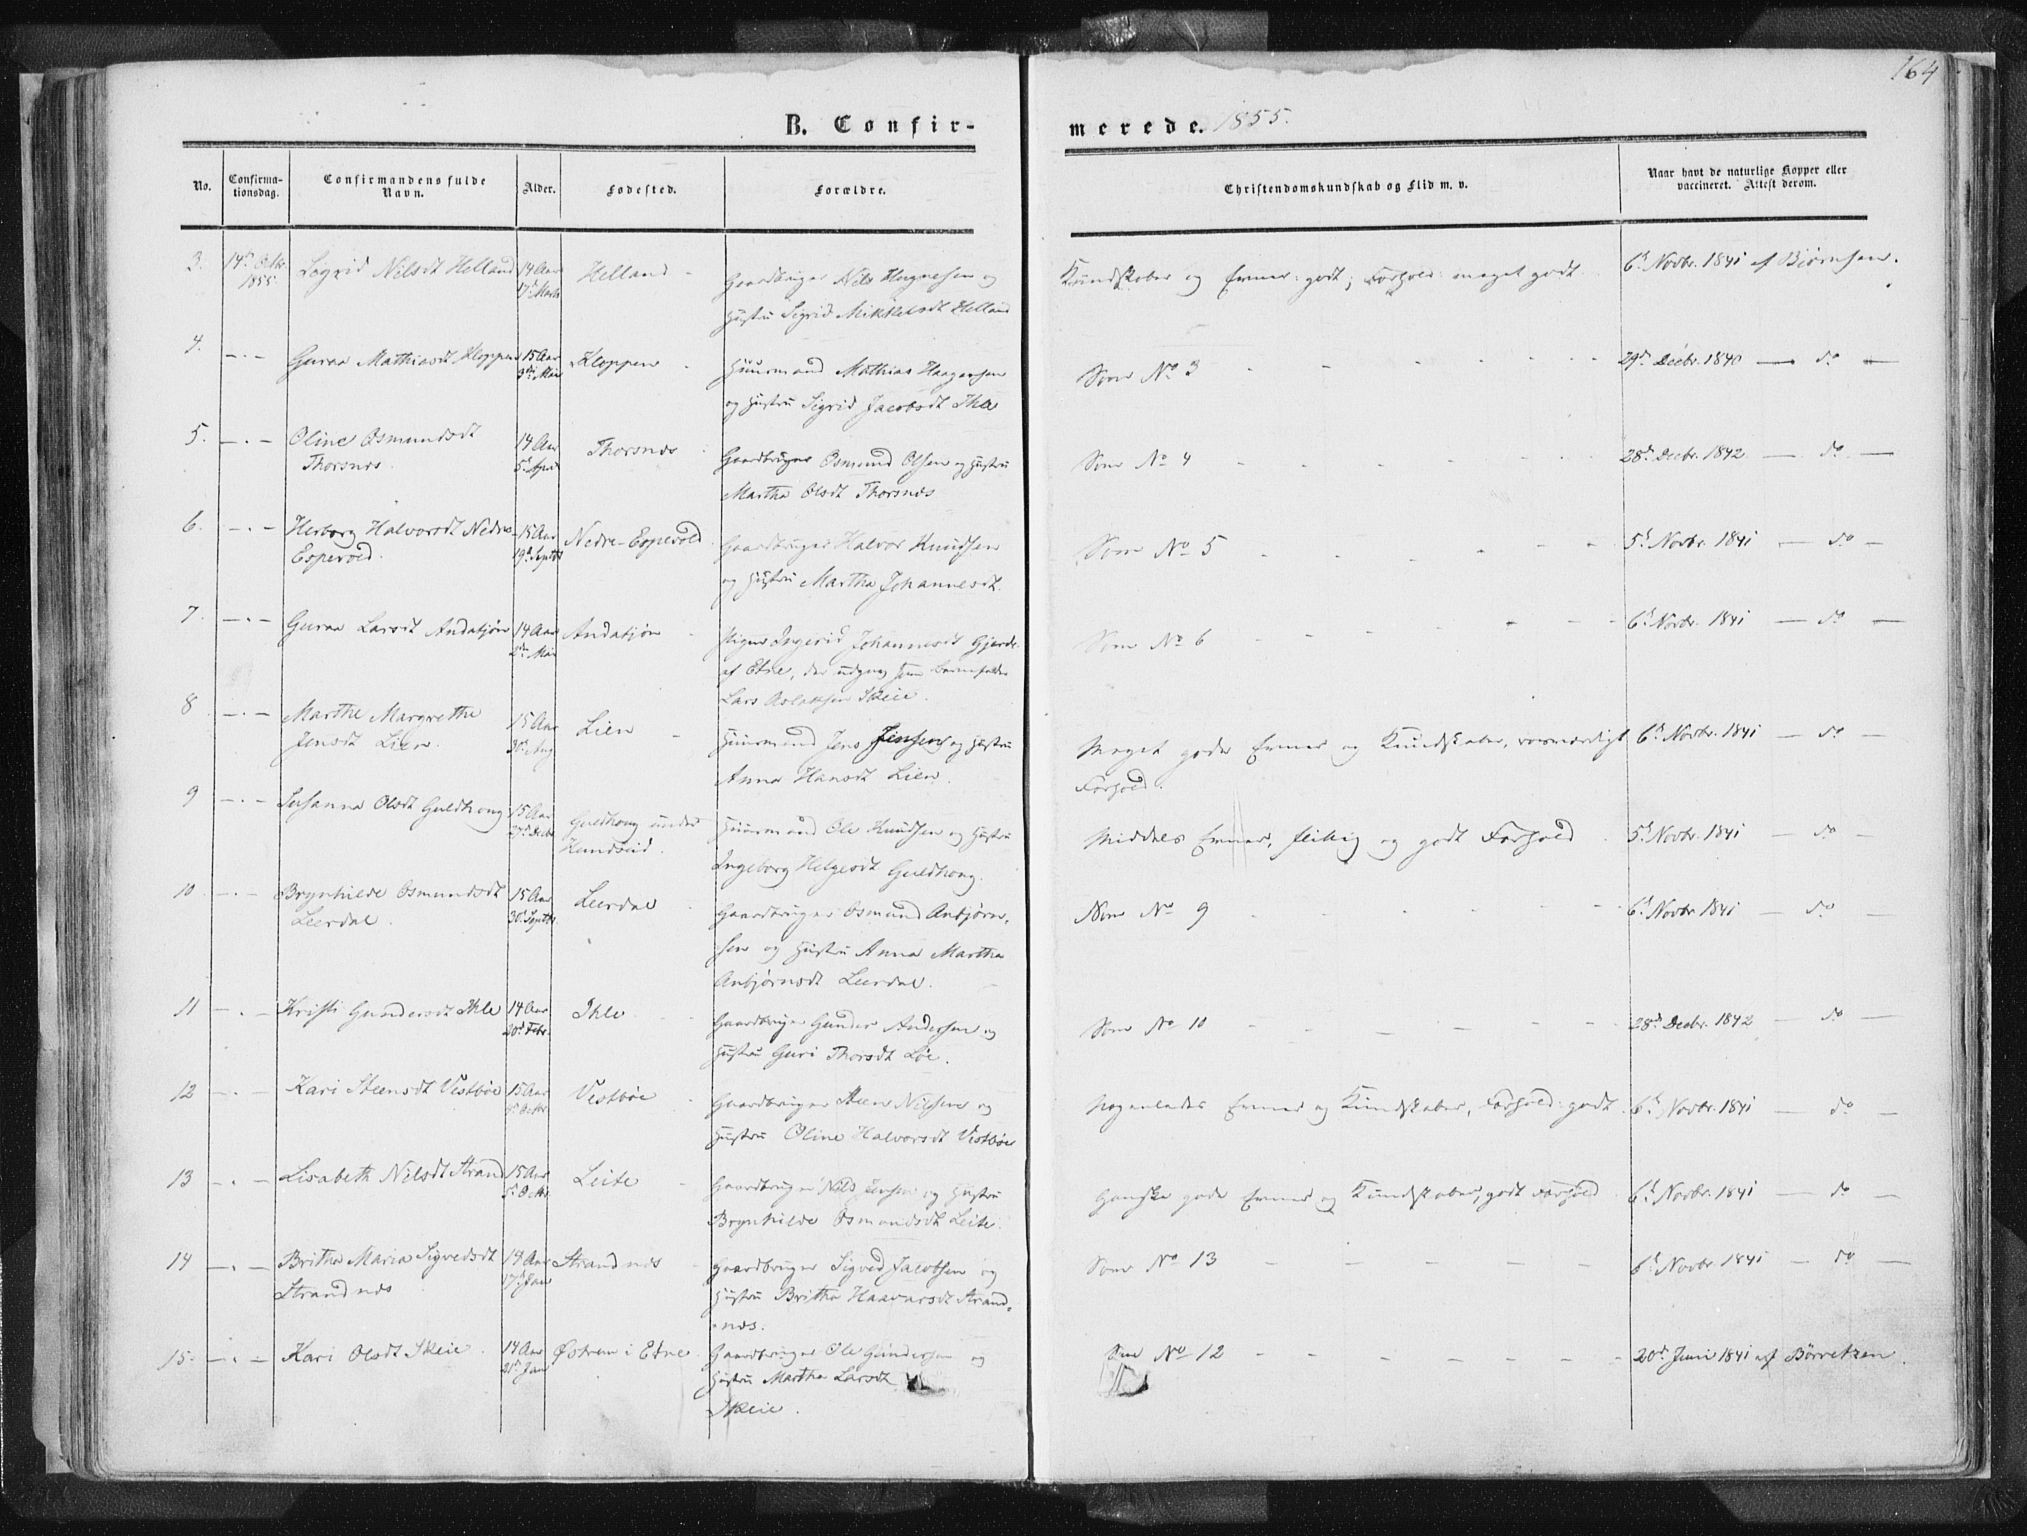 164
B. Confir-
merede. 1855.
No.
Confirma-
tionsdag.
Confirmandens fulde
Navn.
Alder.
Fødested.
Forældre.
Christendomskundskab og Flid m. v.
Naar havt de naturlige Kopper eller
vaccineret. Attest derom.
3. 14de Octbr. 1855. Sigrid Nilsdt Helland 14 Aar 17de Marts Helland - Gaardbruger Nils og
Hustru Sigrid Mikkelsdt Helland
Kundskaber og Evner: godt; Forhold: meget godt 6te Novbr. 1841 af Bjørnsen.
4. -.- Guroa Mathiasdt Kloppen 15 Aar Mai Kloppen - Huusmand Mathias Haagensen
og Hustru Sigrid Jacobsdt Ihle
Som No 3 - - - - 29de Decbr. 1840 - do -
5. -.- Oline Osmundsdt
Thorsnæs. 14 Aar 5te April Thorsnæs - Gaardbruger Osmund Olsen og Hustru
Martha Olsdt Thorsnæs
Som No 4 - - - - 28de Decbr. 1842 - do -
6. -.- Herborg Halvorsdt Nedre
Espevold. 15 Aar 19de Septbr Nedre-Espevold. Gaardbruger Halvor Knudsen
og Hustru Martha Johannesdt.
Som No 5 - - - - 5te Novbr. 1841 - do -
7. -.- Guroa Larsdt Andatjøn 14 Aar 2den Mai Andatjøn - Pigen Ingerid Johannesdt Gjerde
af Etne, der udgav som Barnefader
Lars Aslaksen Skeie.
Som No 6 - - - - 6te Novbr. 1841 - do -
8 -.- Marthe Margrethe
Jensdt Lien. 15 Aar 30te Aug Lien - Huusmand Jens Jensen og Hustru
Anna Hansdt Lien.
Meget gode Evner og Kundskaber, roesværdigt
Forhold. 6te Novbr. 1841 - do -
9 -.- Susanna Olsdt Guldhoug 15 Aar 27de Decbr Guldhoug under
Hundseid. Huusmand Ole Knudsen og Hustru
Ingeborg Helgesdt Guldhoug.
Middels Evner, flittig og godt Forhold 5te Novbr. 1841 - do -
10 -.- Brynhilde Osmundsdt
Leerdal. 15 Aar 30te Septbr Leerdal - Gaardbruger Osmund Anbjørn-
sen og Hustru Anna Martha
Anbjørnsdt Leerdal.
Som No 9 - - - - 6te Novbr 1841 - do -
11 -.- Kristi Gundersdt Ihle 14 Aar 20de Febr. Ihle - Gaardbruger Gunder Andersen og
Hustru Guri Thorsdt Løe.
Som No 10 - - - - 28de Decbr. 1842 - do -
12 -.- Kari Steensdt Vestbøe 15 Aar Octbr Vestbøe - Gaardbruger Steen Nilsen og
Hustru Oline Halvorsdt Vestbøe
Nogenlunde Evner og Kundskaber, Forhold: godt. 6te Novbr. 1841 - do -
13 -.- Lisabeth Nilsdt Strand 15 Aar 5te Octbr. Leite - Gaardbruger Nils Jensen og Hustru
Brynhilde Osmundsdt Leite.
Ganske gode Evner og Kundskaber, godt Forhold 6te Novbr. 1841 - do -
14 -.- Britha Maria Sigvedsdt
Strandnæs 14 Aar 17de Jan Strandnæs - Gaardbruger Sigved Jacobsen og
Hustru Britha Haavarsdt Strand-
næs.
Som No 13 - - - - 6te Novbr. 1841 - do -
15. -.- Kari Olsdt Skeie. 14 Aar 21de Jan Østrem i Etne. Gaardbruger Ole Gundersen og
Hustru Martha Larsdt
Skeie.
Som No 12 - - - - 20de Juni 1841 af Børretzen.